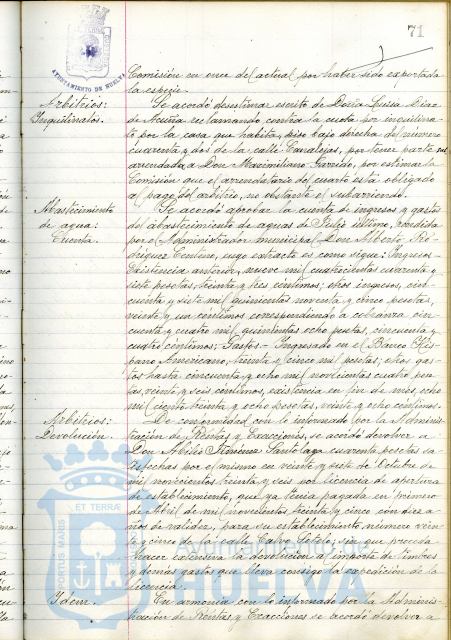 71
AYUNTAMIENTO DE HUELVA
Comisión en once del actual por haber sido exportada
la especie.
Arbitrios:
Inquilinatos.
Se acordó desestimar escrito de Doña Luisa Díaz
de reclamando contra la cuota por inquilina-
to por la casa que habita, piso bajo derecha del número
cuarenta y dos de la calle Canalejas, por tener parte
arrendada a Don Maximiliano Garrido, por estimar la
Comisión que el arrendatario del cuarto está obligado
al pago del arbitrio, no obstante el subarriendo.
Abastecimiento
de agua:
Cuenta.
Se acordó aprobar la cuenta de ingresos y gastos
del abastecimiento de aguas de Julio último, rendida
por el Administrador municipal Don Alberto Ro-
dríguez Centeno, cuyo extracto es como sigue: Ingresos-
Existencia anterior, nueve mil cuatrocientas cuarenta y
siete pesetas, treinta y tres céntimos; otros ingresos, cin-
cuenta y siete mil quinientas noventa y cinco pesetas,
veinte y un céntimos correspondiendo a cobranza cin-
cuenta y cuatro mil quinientas ocho pesetas, cincuenta y
cuatro céntimos; Gastos- Ingresado en el Banco His-
pano Americano, treinta y cinco mil pesetas; otros gas-
tos hasta cincuenta y ocho mil novecientas cuatro pese-
tas, veinte y seis céntimos, existencia en fin de mes, ocho
mil ciento treinta y ocho pesetas, veinte y ocho céntimos.
Arbitrios:
Devolución.
De conformidad con lo informado por la Adminis-
tración de Rentas y Exacciones, se acordó devolver a
Don Abilio Jiménez cuarenta pesetas sa-
tisfechas por el mismo en veinte y siete de Octubre de
mil novecientos treinta y seis por licencia de apertura
de establecimiento, que ya tenía pagada en primero
de Abril de mil novecientos treinta y cinco con diez a-
ños de validez, para su establecimiento número vein-
te y cinco de la calle Calvo Sotelo, sin que proceda
hacer extensiva la devolución a importe de timbres
y demás gastos que lleva consigo la expedición de la
licencia.
Idem.
En armonía con lo informado por la Adminis-
tración de Rentas y Exacciones se acordó devolver a
PORTUS MARIS ET TERRAE
HUELVA